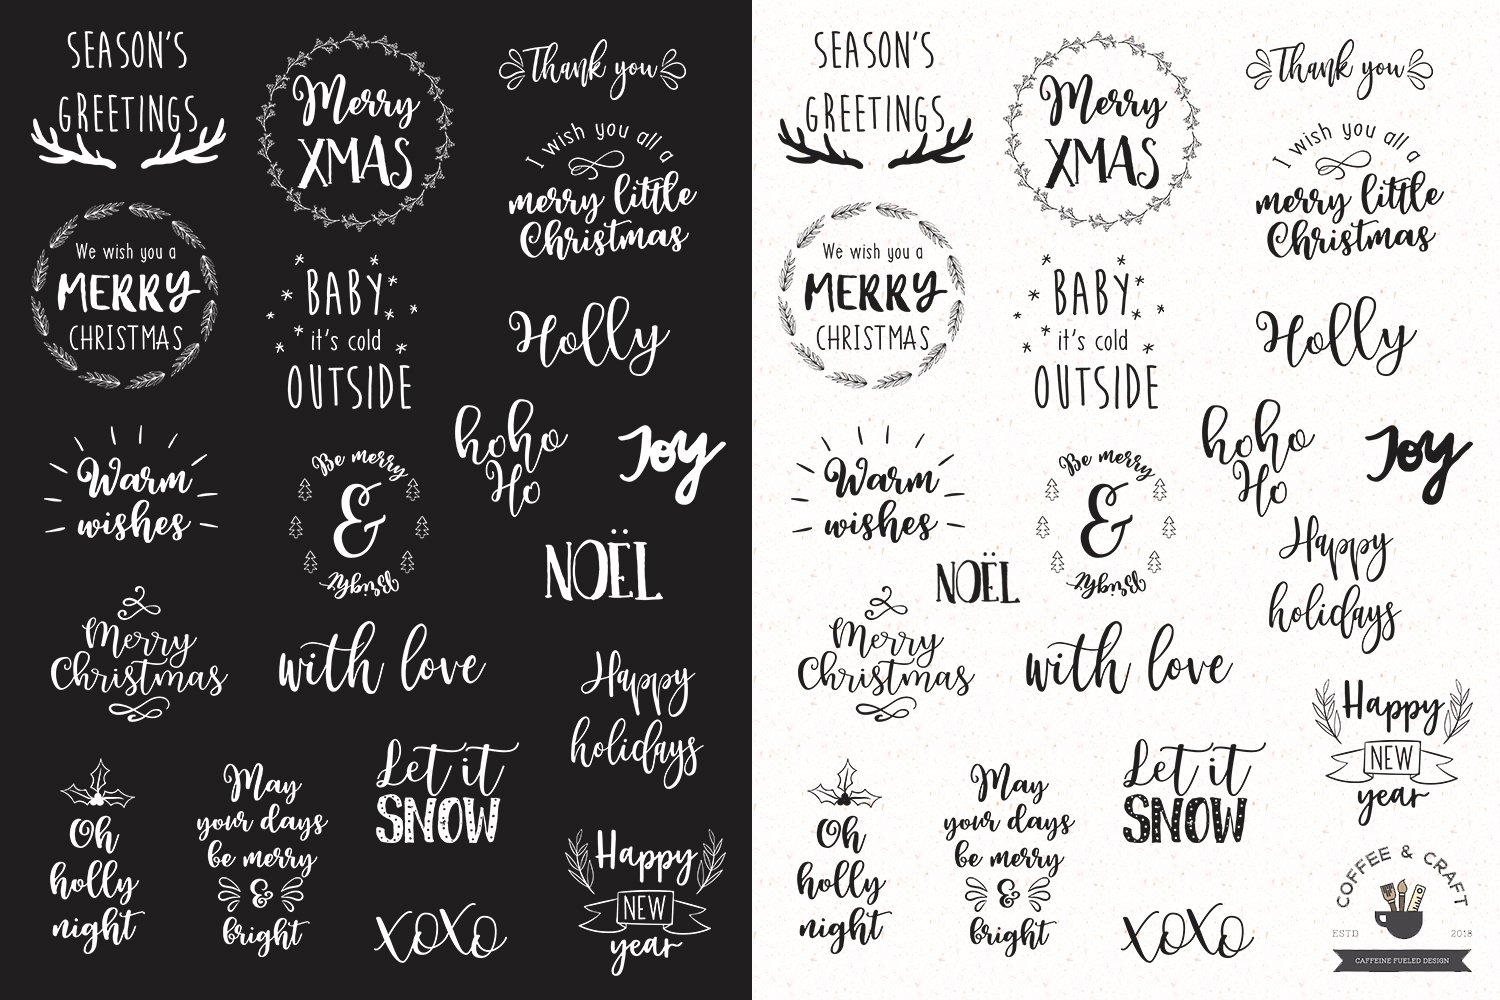 SEASON'S
GREETINGS
Merry
XMAS
Thank you
I wish you all a
merry little
Christmas
We wish you a
MERRY
CHRISTMAS
BABY
it's cold
OUTSIDE
Holly
hoho
Ho
Joy
Warm
wishes
Be merry
&
Bright
NOËL
Merry
Christmas
with love
Happy
holidays
Oh
holly
night
May
your days
be merry
&
bright
Let it
SNOW
XOXO
Happy
NEW
year
SEASON'S
GREETINGS
Merry
XMAS
Thank you
I wish you all a
merry little
Christmas
We wish you a
MERRY
CHRISTMAS
BABY
it's cold
OUTSIDE
Holly
hoho
Ho
Joy
Warm
wishes
Be merry
&
Bright
NOËL
Happy
holidays
Merry
Christmas
with love
Happy
NEW
year
Oh
holly
night
May
your days
be merry
&
bright
Let it
SNOW
XOXO
COFFEE & CRAFT
ESTD 2018
CAFFEINE FUELED DESIGN